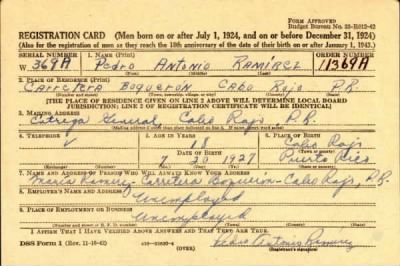 FORM APPROVED
Budget Bureau No. 33-R012-42
REGISTRATION CARD (Men born on or after July 1, 1924, and on or before December 31, 1924)
(Also for the registration of men as they reach the 18th anniversary of the date of their birth on or after January 1, 1943.)
SERIAL NUMBER 1. NAME (Print) ORDER NUMBER
W 369A Pedro Antonio Ramírez 11369A
(First) (Middle) (Last)
2. PLACE OF RESIDENCE (Print)
Carretera Boquerón Cabo Rojo P.R.
(Number and street) (Town, township, village, or city) (County) (State)
[THE PLACE OF RESIDENCE GIVEN ON LINE 2 ABOVE WILL DETERMINE LOCAL BOARD
JURISDICTION; LINE 2 OF REGISTRATION CERTIFICATE WILL BE IDENTICAL]
3. MAILING ADDRESS
Entrega General, Cabo Rojo, P.R.
4. TELEPHONE 5. AGE IN YEARS 6. PLACE OF BIRTH
Cabo Rojo
DATE OF BIRTH (Town or county)
7 20 1927 Puerto Rico
(Mo.) (Day) (Yr.) (State or country)
7. NAME AND ADDRESS OF PERSON WHO WILL ALWAYS KNOW YOUR ADDRESS
María Ramírez - Carretera Boquerón - Cabo Rojo, P.R.
8. EMPLOYER'S NAME AND ADDRESS
Unemployed
9. PLACE OF EMPLOYMENT OR BUSINESS
Unemployed
(Number and street or R. F. D. number) (Town) (County) (State)
I AFFIRM THAT I HAVE VERIFIED ABOVE ANSWERS AND THAT THEY ARE TRUE.
DSS Form 1 (Rev. 11-16-42) (OVER) Pedro Antonio Ramírez
(Registrant's signature)